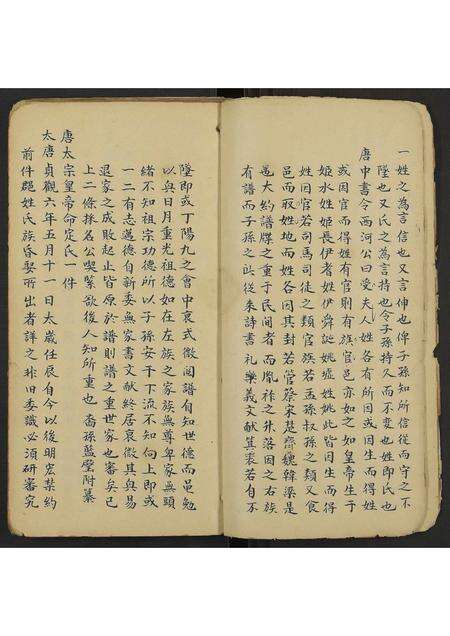 一姓之為言信也又言伸也俾子孫知所信從而守之不
墜也又氏之為言持也令子孫持久而不变也姓即氏也
唐中書令西河公曰受夫人姓各有所因或因生而得姓
或因官而得姓有官則有族官邑亦如之如皇帝生于
姬水姓姬長伊者姓伊舜姚墟姓姚此皆因生而得
姓因官若司馬司徒之類官族若孟孫叔孫之類又食
邑而取姓地而姓各因其封若管蔡宋楚齊魏韓梁是
邑大約譜牒之重于民間者而胤祚之失落因之右族
有譜而子孫之所從來詩書礼樂義文献箕裘若有不
墜即或丁陽九之會中衰式微閱譜有知世德而黽勉
以與日月重光祖德如在左族之家族無尊卑家無頭
緒不知祖宗功德所以子孫安于下流不知向上即或
一二有志邁德自新委無家書文献終居衰微其與易
退家之成敗起止皆原於譜則譜之重世家也審矣已
上二條採名公喫緊欲後人知所重也 裔孫藍璧附纂
唐太宗皇帝命定氏一件
太唐貞觀六年五月十一日太歲任辰自今以後明宏禁約
前件郡姓氏族昏娶所出者詳之非旧委識必須研審究